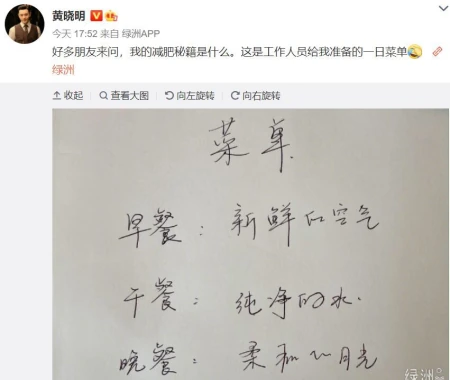 黄晓明
今天 17:52 来自 绿洲APP
好多朋友来问，我的减肥秘籍是什么。这是工作人员给我准备的一日菜单
绿洲
收起 查看大图 向左旋转 向右旋转
菜单
早餐：新鲜的空气
干餐：纯净的水.
晚餐：柔和的月光
绿洲